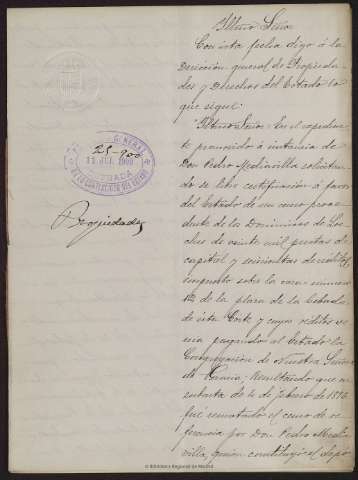 Iltmo Señor
Con esta fecha digo á la
Dirección general de Propieda-
des y Derechos del Estado lo
que sigue:
"Iltmo Señor: En el expedien-
te promovido á instancia de
Don Pedro Mediavilla solicitan-
do se libre certificación á favor
del Estado de un censo proce-
dente de las Dominicas de Loe-
ches de veinte mil pesetas de
capital y seiscientas de réditos,
impuesto sobre la casa número
de la plaza de la Cebada
de esta Corte y cuyos réditos ve-
nía pagando al Estado la
Congregación de Nuestra Señora
de Gracia; Resultando que en
subasta de 4 de febrero de 1896
fué rematado el censo de re-
ferencia por Don Pedro Media-
villa, quien constituyó el depó-
GENERAL
25-900
11 JUL. 1900
ENTRADA
DE LO CONTENCIOSO DEL ESTADO
Propiedades
© Biblioteca Regional de Madrid